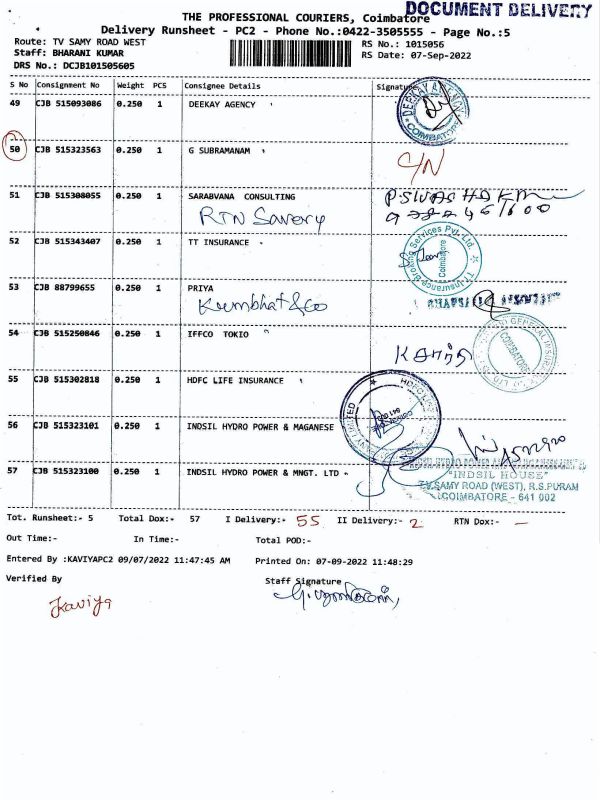 DOCUMENT DELIVERY
THE PROFESSIONAL COURIERS, Coimbatore
Delivery Runsheet - PC2 - Phone No.:0422-3505555 - Page No.:5
Route: TV SAMY ROAD WEST
RS No.: 1015056
Staff: BHARANI KUMAR
RS Date: 07-Sep-2022
DRS No.: DCJB101505605
S No Consignment No Weight PCS Consignee Details Signature
49 CJB 515093086 0.250 1 DEEKAY AGENCY
DEEKAY AGENCY COIMBATORE
50 CJB 515323563 0.250 1 G SUBRAMANAM
C/N
51 CJB 515308055 0.250 1 SARABVANA CONSULTING
RTN
52 CJB 515343407 0.250 1 TT INSURANCE
TT Insurance Broking Services Pvt. Ltd. Coimbatore
53 CJB 88799655 0.250 1 PRIYA
Kumbhat & Co
54 CJB 515250846 0.250 1 IFFCO TOKIO
COIMBATORE
55 CJB 515302818 0.250 1 HDFC LIFE INSURANCE
56 CJB 515323101 0.250 1 INDSIL HYDRO POWER & MAGANESE
57 CJB 515323100 0.250 1 INDSIL HYDRO POWER & MNGT. LTD
"INDSIL HOUSE"
T.V.SAMY ROAD (WEST), R.S.PURAM
COIMBATORE - 641 002
Tot. Runsheet:- 5 Total Dox:- 57 I Delivery:- 55 II Delivery:- 2 RTN Dox:- —
Out Time:- In Time:- Total POD:-
Entered By :KAVIYAPC2 09/07/2022 11:47:45 AM Printed On: 07-09-2022 11:48:29
Verified By Staff Signature
Kaviya